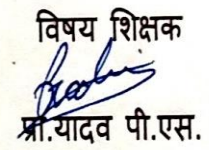 विषय शिक्षक
प्रा.यादव पी.एस.